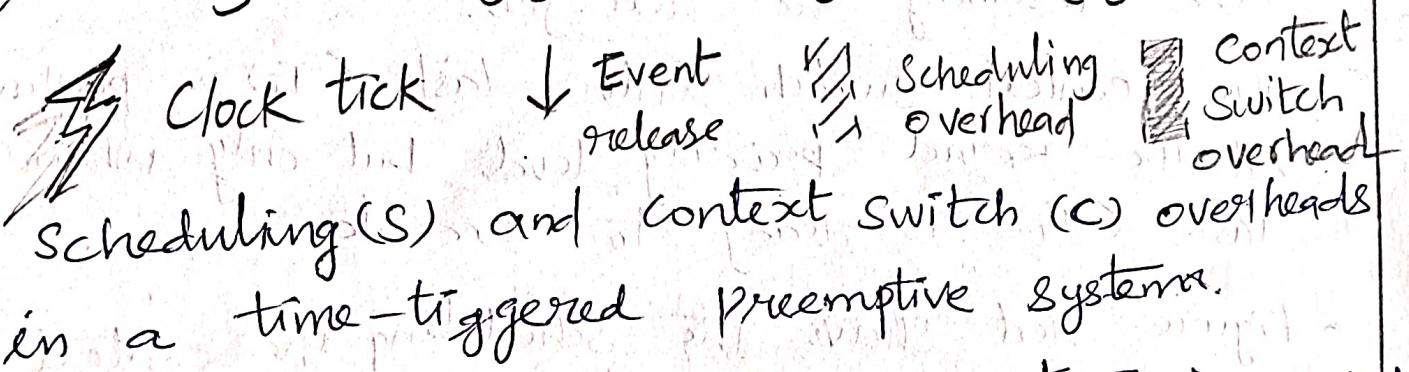 Clock tick ↓ Event release Scheduling overhead Context Switch overhead
Scheduling (S) and context switch (C) overheads
in a time-tiggered preemptive system.